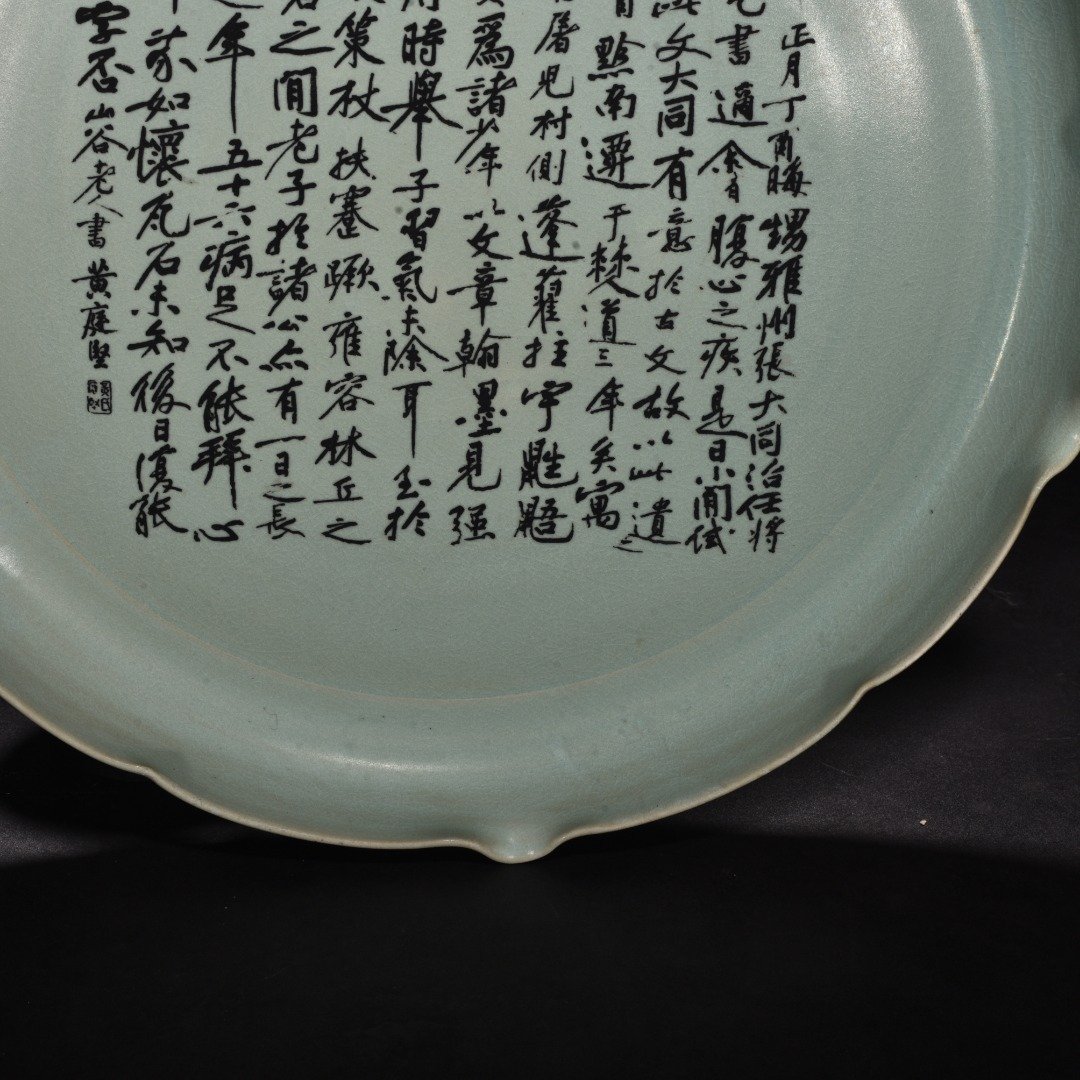 正月丁酉晦甥雅州張大同治任將
書適余有腹心之疾是日小閒試
此文大同有意於古文故以此遺之
黔南遷于僰道三年矣寓
屠兒村側蓬藋拄宇鼪鼯
爲諸少年以文章翰墨見强
時舉子習氣未除耳至於
策杖扶蹇蹶雍容林丘之
之間老子於諸公亦有一日之長
年五十六病足不能拜心
芥如懷瓦石未知後日復能
字否山谷老人書黃庭堅